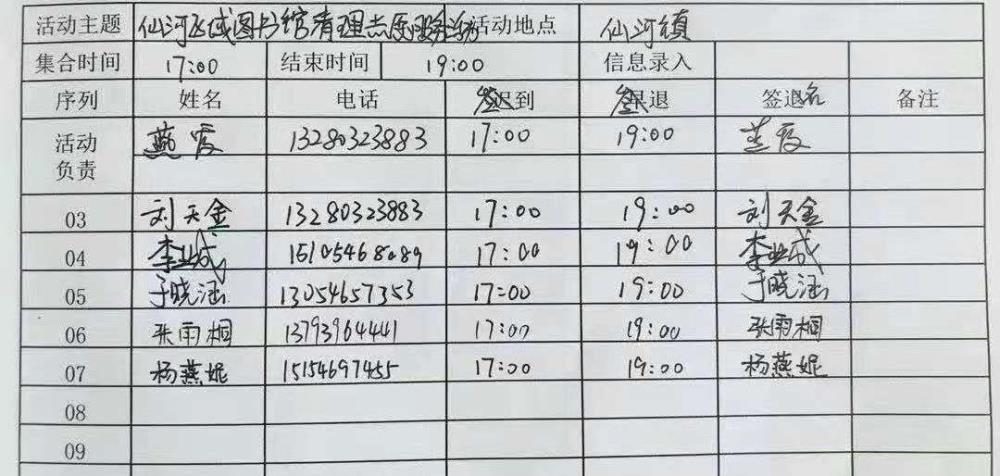 活动主题 仙河飞域图书馆清理志愿服务活动 活动地点 仙河镇
集合时间 17:00 结束时间 19:00 信息录入
序列 姓名 电话 签到 签退 签退名 备注
活动负责 燕霞 13280323883 17:00 19:00 燕霞
03 刘天金 13280323883 17:00 19:00 刘天金
04 李业成 15105468089 17:00 19:00 李业成
05 于晓涵 13054657353 17:00 19:00 于晓涵
06 张雨桐 13793964441 17:00 19:00 张雨桐
07 杨燕妮 15154697455 17:00 19:00 杨燕妮
08
09